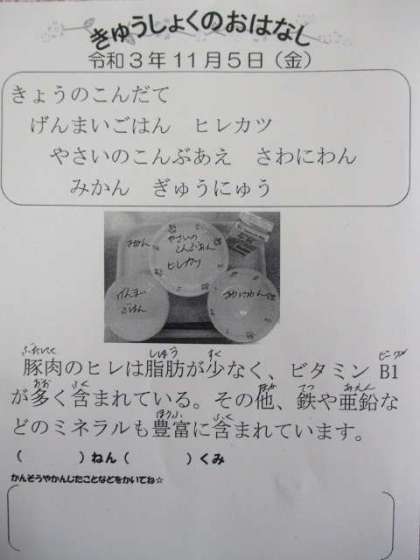 きゅうしょくのおはなし
令和３年１１月５日（金）
きょうのこんだて
げんまいごはん　ヒレカツ
やさいのこんぶあえ　さわにわん
みかん　ぎゅうにゅう
みかん
やさいの
こんぶあえ
ヒレカツ
げんまい
ごはん
さわにわん
ぶたにく
しぼう
すく
豚肉のヒレは脂肪が少なく、ビタミン B1
おお
ふく
ほか
てつ
あえん
が多く含まれている。その他、鉄や亜鉛な
ほうふ
ふく
どのミネラルも豊富に含まれています。
（　　　）ねん（　　　）くみ
かんそうやかんじたことなどをかいてね☆